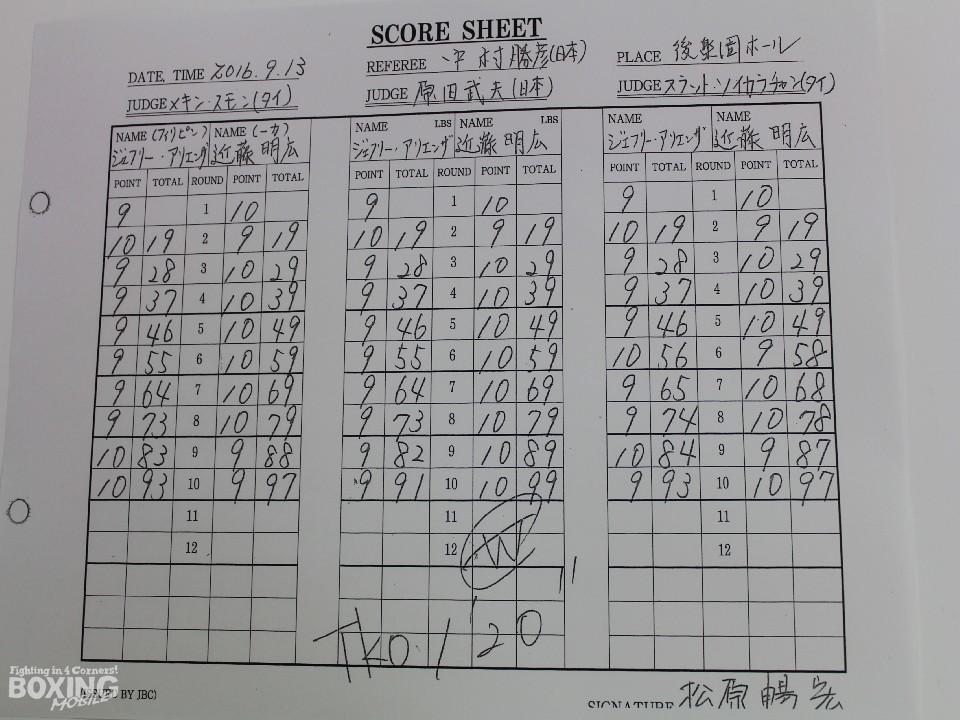 SCORE SHEET
DATE, TIME 2016.9.13
REFEREE 中村勝彦(日本)
PLACE 後楽園ホール
JUDGE メキン・スモン(タイ)
JUDGE 原田武夫(日本)
JUDGE スラット・ソイカラチャン(タイ)
NAME (フィリピン) NAME (一力) NAME LBS NAME LBS NAME NAME
ジェフリー・アリエンザ 近藤明広 ジェフリー・アリエンザ 近藤明広 ジェフリー・アリエンザ 近藤明広
POINT TOTAL ROUND POINT TOTAL POINT TOTAL ROUND POINT TOTAL POINT TOTAL ROUND POINT TOTAL
9 1 10 9 1 10 9 1 10
10 19 2 9 19 10 19 2 9 19 10 19 2 9 19
9 28 3 10 29 9 28 3 10 29 9 28 3 10 29
9 37 4 10 39 9 37 4 10 39 9 37 4 10 39
9 46 5 10 49 9 46 5 10 49 9 46 5 10 49
9 55 6 10 59 9 55 6 10 59 10 56 6 9 58
9 64 7 10 69 9 64 7 10 69 9 65 7 10 68
9 73 8 10 79 9 73 8 10 79 9 74 8 10 78
10 83 9 9 88 9 82 9 10 89 10 84 9 9 87
10 93 10 9 97 9 91 10 10 99 9 93 10 10 97
11 11 11
12 12 W 12
TKO 1' 20"
Fighting in 4 Corners!
BOXING
MOBILE
BY JBC)
SIGNATURE 松原暢宏